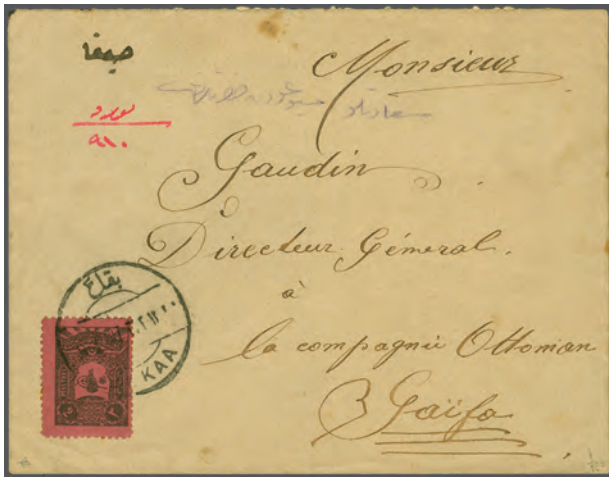 حيفا
Monsieur
٩١٠
Gaudin
Directeur Géneral.
à
la compagnie Ottoman
Gaïfa
بقاع
KAA